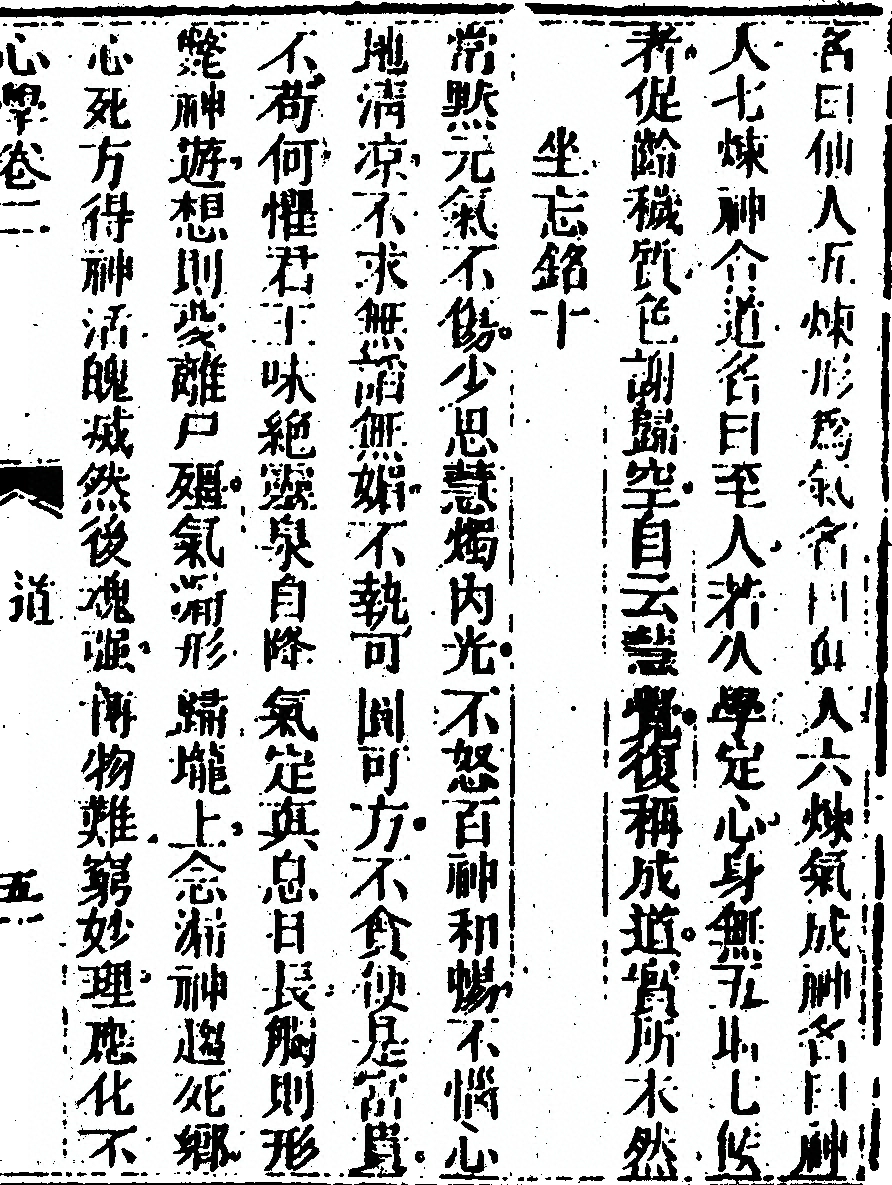 名曰仙人五煉形爲氣名曰真人六煉氣成神名曰神
人七煉神合道名曰至人若久學定心身無五時七候
者促齡穢質色謝歸空自云慧覺復稱成道實所未然
坐忘銘十
常默元氣不傷少思慧燭內光不怒百神和暢不惱心
地清凉不求無諂無媚不執可圓可方不貪便是富貴
不苟何懼君王味絕靈泉自降氣定真息日長觸則形
斃神遊想則夢離尸殭氣漰形歸壠上念漰神趨死鄉
心死方得神活魄滅然後魂强博物難窮妙理應化不
心學卷二
道
五